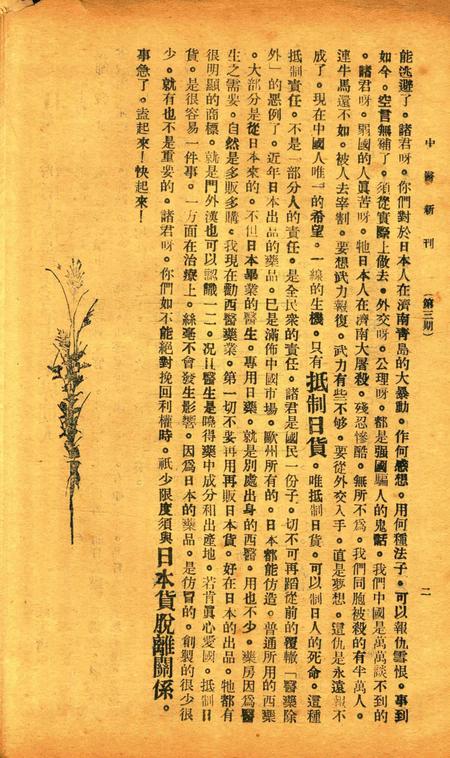 中醫新刊
(第三期)
二
能洗避了。諸君呀。你們對於日本人在濟南青島的大暴動。作何感想。用何種法子。可以報仇雪恨。事到
如今。空言無補了。須從實際上做去。外交呀。公理呀。都是强國騙人的鬼話。我們中國是萬萬談不到的
。諸君呀。弱國的人眞苦呀。牠日本人在濟南大屠殺。殘忍慘酷。無所不爲。我們同胞被殺的有半萬人。
連牛馬還不如。被人去宰割。要想武力報復。武力有些不够。要從外交入手。直是夢想。這仇是永遠報不
成了。現在中國人唯一的希望。一線的生機。只有抵制日貨。唯抵制日貨。可以制日人的死命。這種
抵制責任。不是一部分人的責任。是全民衆的責任。諸君是國民一份子。切不可再蹈從前的覆轍「醫藥除
外」的惡例了。近年日本出品的藥品。已是滿佈中國市場。歐州所有的。日本都能仿造。普通所用的西藥
。大部分是從日本來的。不但日本畢業的醫生。專用日藥。就是別處出身的西醫。用也不少。藥房因爲醫
生之需要。自然是多販多購。我現在勸西醫藥業。第一切不妥再用再販日本貨。好在日本的出品。牠都有
很明顯的商標。就是門外漢也可以認識一二。况且醫生是曉得藥中成分和出產地。若肯眞心愛國。抵制日
貨。是很容易一件事。一方面在治療上。絲毫不會發生影響。因爲日本的藥品。是仿冒的。創製的很少很
少。就有也不是重要的。諸君呀。你們如不能絕對挽回利權時。祇少限度須與日本貨脫離關係。
事急了。盍起來！快起來！